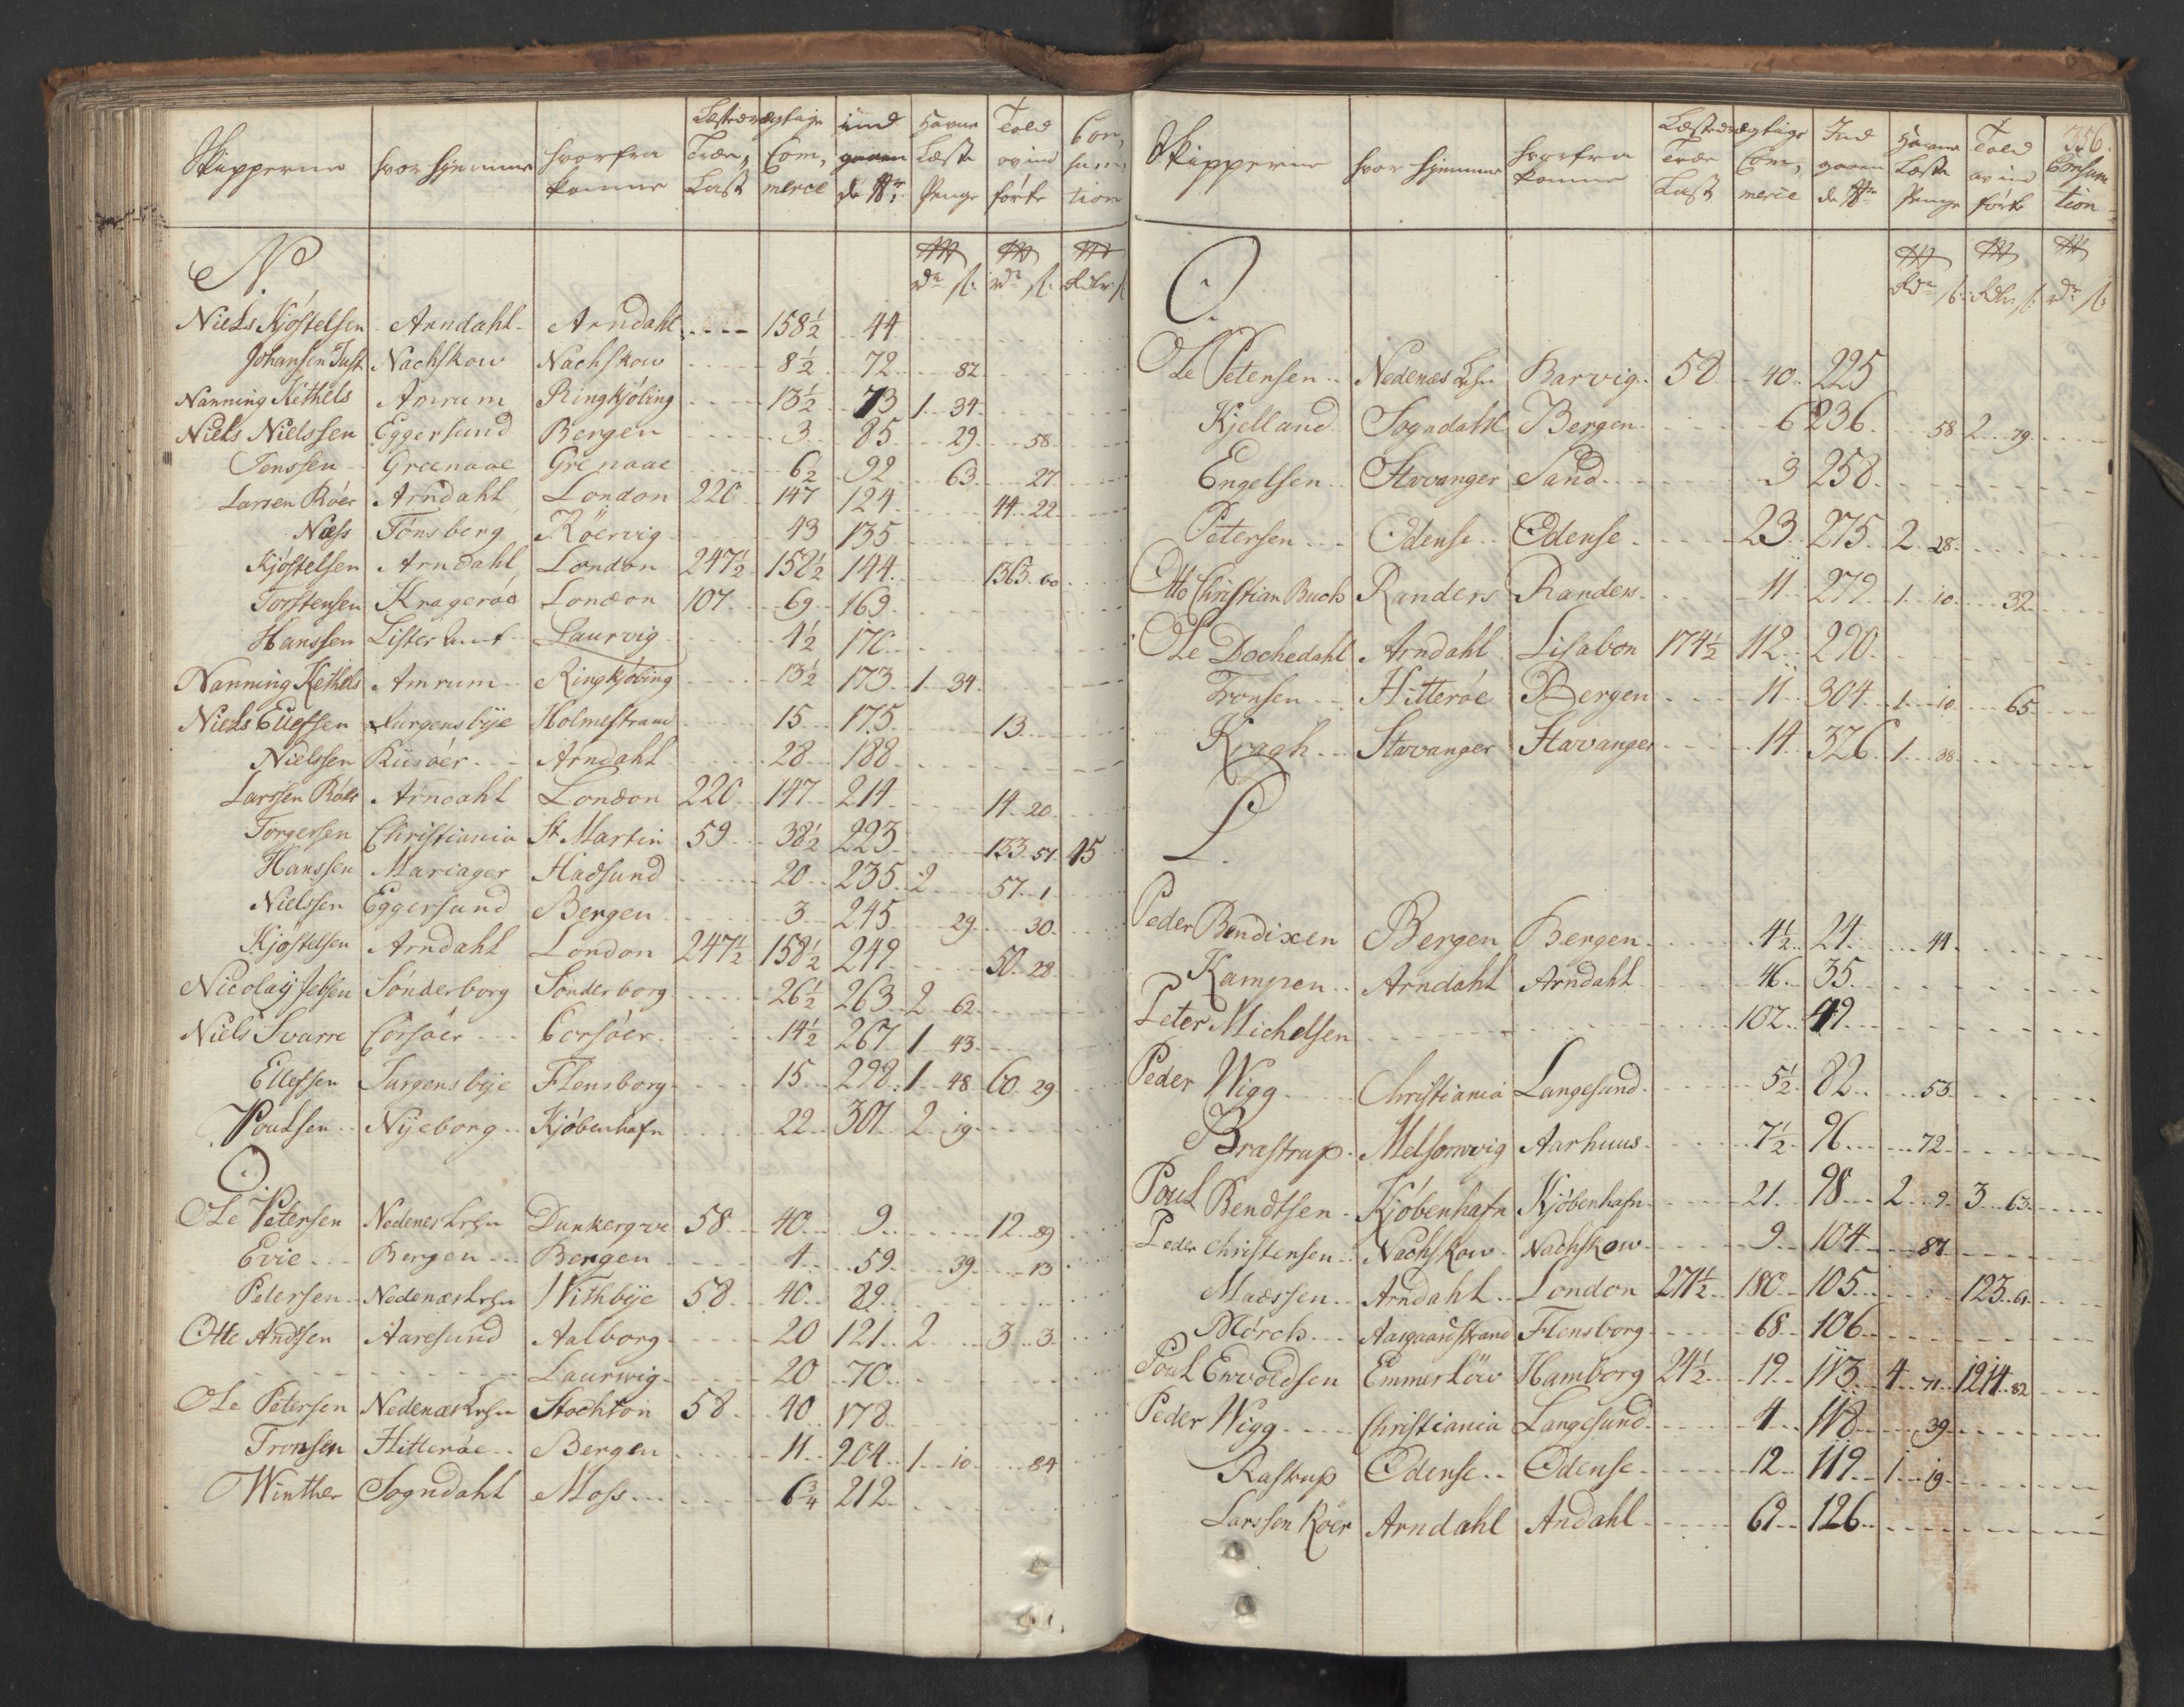 Skipperne | hvor hjemme | hvorfra komne | Læstedrægtige Træe, Last | Com, merce | ind gaaen de No | Havne Læste Penge | Told av ind førte | Con, sum, tion
N.
Niels Kjøstelsen | Arndahl | Arndahl | 158½ | 44
Johansen Just | Nachskow | Nachskow | 8½ | 72 | 82
Nanning Kethels | Amrum | Ringkjöling | 13½ | 73 | 1 34
Niels Nielssen | Eggersund | Bergen | 3 | 85 | 29 | 58
Jenssen | Greenaae | Grenaae | 6½ | 92 | 63 | 27
Larsen Röer | Arndahl | London | 220 | 147 | 124 | 44 22
Næss | Tönsberg | Röervig | 43 | 135
Kjöstelsen | Arndahl | London | 247½ | 158½ | 144 | 1363 60
Torstensen | Krageröe | London | 107 | 69 | 169
Hanssen | Lister Amt | Laurvig | 4½ | 170
Nanning Kethels | Amrum | Ringkjöbing | 13½ | 173 | 1 34
Niels Ellefsen | Jurgensbÿe | Holmestrand | 15 | 175 | 13
Nielssen | Riisöer | Arndahl | 28 | 188
Larssen Röer | Arndahl | London | 220 | 147 | 214 | 14 20
Torgersen | Christiania | St Martin | 59 | 38½ | 223 | 133 57 | 15
Hanssen | Mariager | Hadsund | 20 | 235 | 2 | 57 1
Nielssen | Eggersund | Bergen | 3 | 245 | 29 | 30
Kjøstelsen | Arndahl | London | 247½ | 158½ | 249 | 50 28
Nicolaÿ Jebsen | Sönderborg | Sönderborg | 26½ | 263 | 2 62
Niels Svarre | Corsöer | Corsöer | 14½ | 267 | 1 43
Ellefsen | Jurgensbÿe | Flensborg | 15 | 298 | 1 48 | 60 29
Poulsen | Nÿeborg | Kjöbenhafn | 22 | 301 | 2 19
O.
Ole Petersen | Nedenes Lehn | Dunkerqve | 58 | 40 | 9 | 12 89
Evie | Bergen | Bergen | 4 | 59 | 39 | 13
Petersen | Nedenæs Lehn | Withbÿe | 58 | 40 | 89
Otte Andsen | Aaresund | Aalborg | 20 | 121 | 2 | 3 3
Laurwig | 20 | 70
Ole Petersen | Nedenæs Lehn | Stockton | 58 | 40 | 178
Tronsen | Hitteröe | Bergen | 11 | 204 | 1 10 | 84
Winther | Sogndahl | Moss | 6¾ | 212
356.
Skipperne | hvor hjemme | hvorfra komne | Læstedrægtige Træe Last | Com, merce | Ind gaaen de No | Havne Læste Penge | Told av ind førte | Consum tion
O.
Ole Petersen | Nedenæs Lehn | Barvig | 58 | 40 | 225
Kjelland | Sogndahl | Bergen | 6 | 236 | 58 | 2 79
Engelsen | Stavanger | Sand | 3 | 258
Petersen | Odense | Odense | 23 | 275 | 2 28
Otto Christian Buch | Randers | Randers | 11 | 279 | 1 10 | 32
Ole Dochedahl | Arndahl | Lisabon | 174½ | 112 | 290
Tronsen | Hitteröe | Bergen | 11 | 304 | 1 10 | 65
Kragh | Stavanger | Stavanger | 14 | 326 | 1 38
P.
Peder Bendixen | Bergen | Bergen | 4½ | 24 | 44
Kampen | Arndahl | Arndahl | 46 | 35
Peter Michelsen | 102 | 49
Peder Wigg | Christiania | Langesund | 5½ | 82 | 53
Brastrup | Melsomvig | Aarhuus | 7½ | 96 | 72
Poul Bendtsen | Kjöbenhafn | Kjöbenhafn | 21 | 98 | 2 9 | 3 63
Peder Christensen | Nachskow | Nachskow | 9 | 104 | 87
Madssen | Arndahl | London | 271½ | 180 | 105 | 123 61
Mörch | Aasgaardstrand | Flensborg | 68 | 106
Poul Ewoldsen | Emmerlöw | Hamborg | 24½ | 19 | 113 | 4 71 | 1214 82
Peder Wigg | Christiania | Langesund | 4 | 118 | 39
Rastrup | Odense | Odense | 12 | 119 | 1 19
Larssen Röer | Arndahl | Andahl | 69 | 126